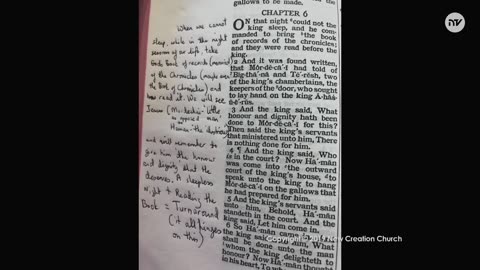 gallows to be made.
CHAPTER 6
ON that night °could not the
king sleep, and he com-
manded to bring °the book
of records of the chronicles;
and they were read before the
king.
2 And it was found written,
that Môr-dĕ-că´-ī had told of
Bĭg´thă-nă and Tē´-rĕsh, two
of the king's chamberlains, the
keepers of the °door, who sought
to lay hand on the king Ă-hăs-
ū-ē´-rŭs.
3 And the king said, What
honour and dignity hath been
done to Môr-dĕ-că´-ī for this?
Then said the king's servants
that ministered unto him, There
is nothing done for him.
4 ¶ And the king said, Who
is in the court? Now Hā´-măn
was come into °the outward
court of the king's house, °to
speak unto the king to hang
Môr-dĕ-că´-ī on the gallows that
he had prepared for him.
5 And the king's servants said
unto him, Behold, Hā´-măn
standeth in the court. And the
king said, Let him come in.
6 So Hā´-măn came in. And
the king said unto him, What
shall be done unto the man
whom the king delighteth to
honour? Now Hā´-măn thought
in his heart, To
When we cannot
sleep, while in the night
seasons of our life, take
God's book of records
of the Chronicles (maybe even
the Book of Chronicles) and
read it. We will see
Jesus
as opposed
Haman
and will remember to
give him the honour
and dignity that He
deserves. A sleepless
night + Reading the
Book = Turnaround
(it all hinges
on this)
New Creation Church